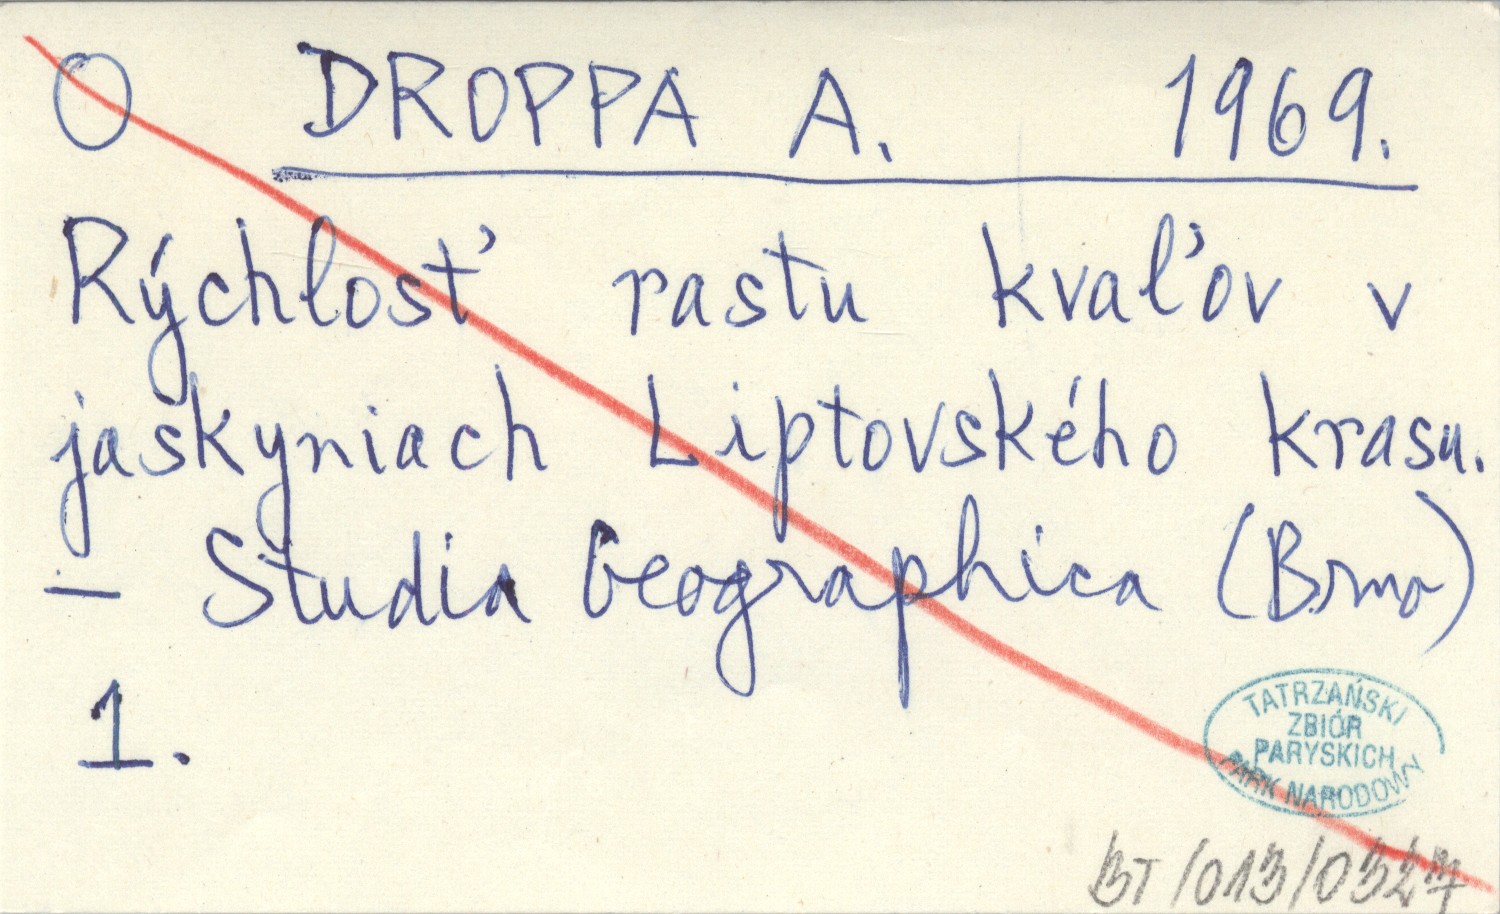 O DROPPA A. 1969.
Rýchlosť rastu kvaľov v
jaskyniach Liptovského krasu.
– Studia Geographica (Brno)
1.
TATRZAŃSKI
ZBIÓR
PARYSKICH
PARK NARODOWY
BT/013/0327